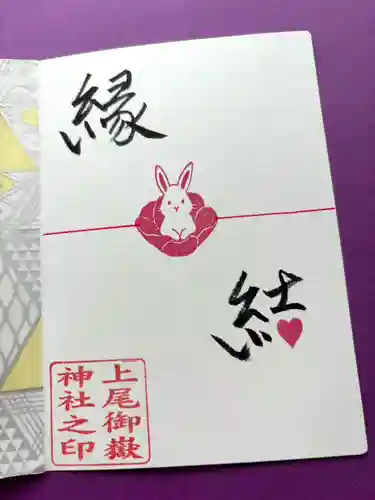 縁
結
上尾御嶽
神社之印